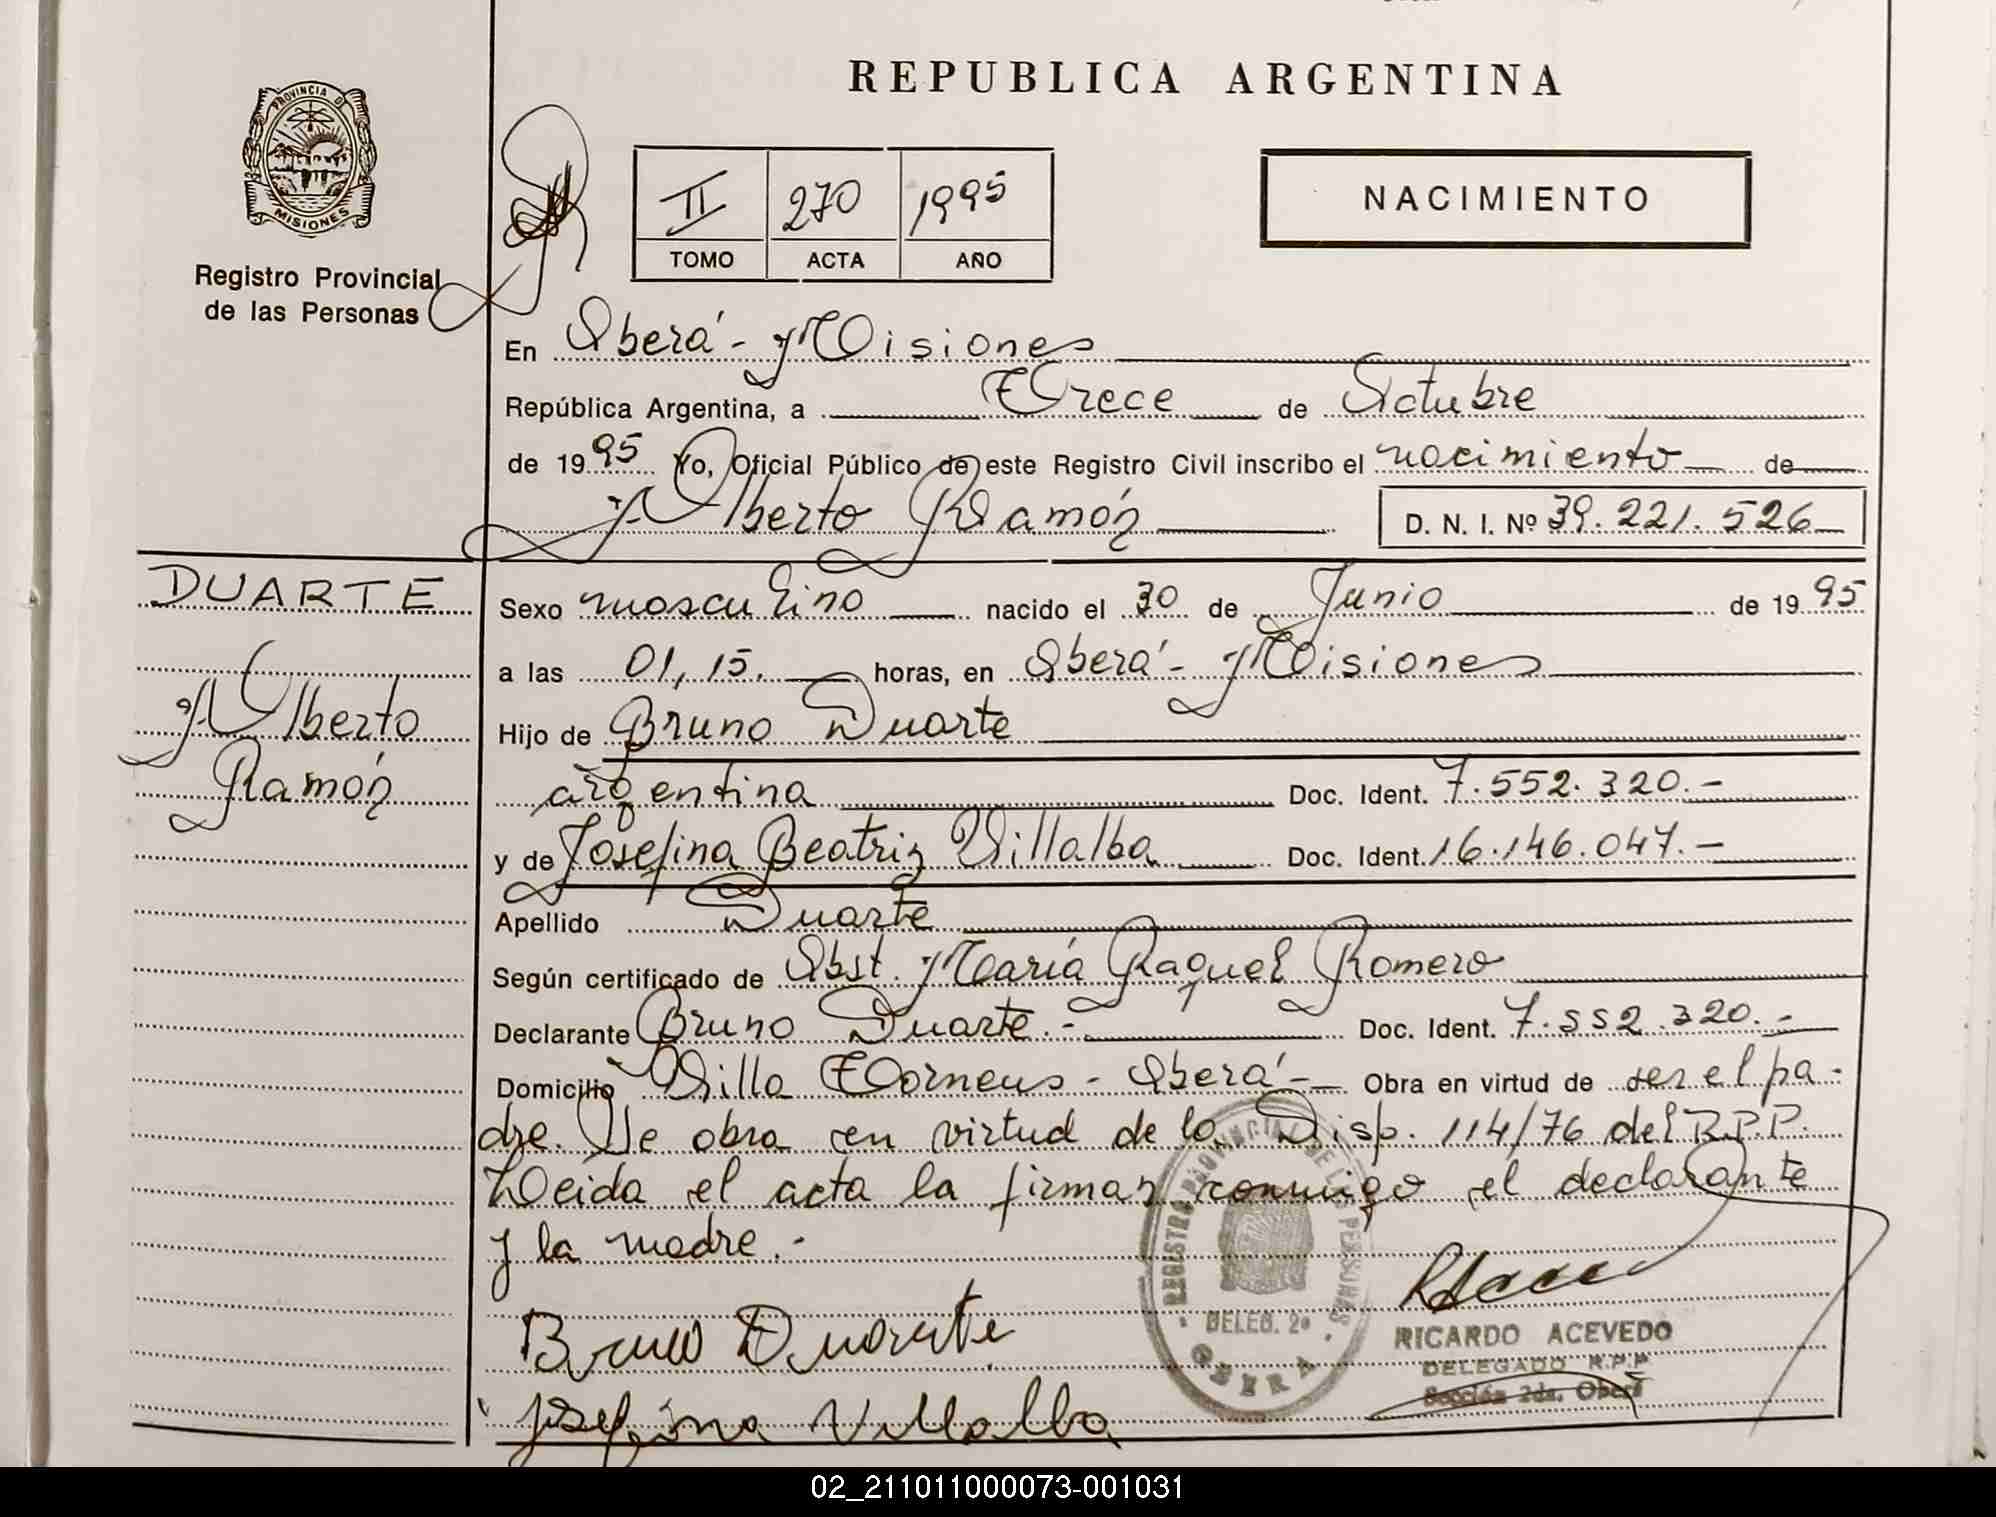 REPUBLICA ARGENTINA
PROVINCIA D
MISIONES
Registro Provincial
de las Personas
II 270 1995
TOMO ACTA AÑO
NACIMIENTO
En Oberá - Misiones
República Argentina, a Trece de Octubre
de 1995 Yo, Oficial Público de este Registro Civil inscribo el nacimiento de
Alberto Ramón D. N. I. Nº 39.221.526
DUARTE
Alberto
Ramón
Sexo masculino nacido el 30 de Junio de 1995
a las 01,15. horas, en Oberá - Misiones
Hijo de Bruno Duarte
argentina Doc. Ident. 7.552.320.-
y de Josefina Beatriz Villalba Doc. Ident. 16.146.047.-
Apellido Duarte
Según certificado de Obst. María Raquel Romero
Declarante Bruno Duarte.- Doc. Ident. 7.552.320.-
Domicilio Villa Torneus - Oberá - Obra en virtud de ser el pa-
dre. Se obra en virtud de la Disp. 114/76 del R.P.P.
Leida el acta la firman conmigo el declarante
y la madre.-
REGISTRO PROVINCIAL DE LAS PERSONAS
DELEG. 2ª
OBERA
Bruno Duarte
Josefina Villalba
RICARDO ACEVEDO
DELEGADO R.P.P
Sección 2da. Oberá
02_211011000073-001031